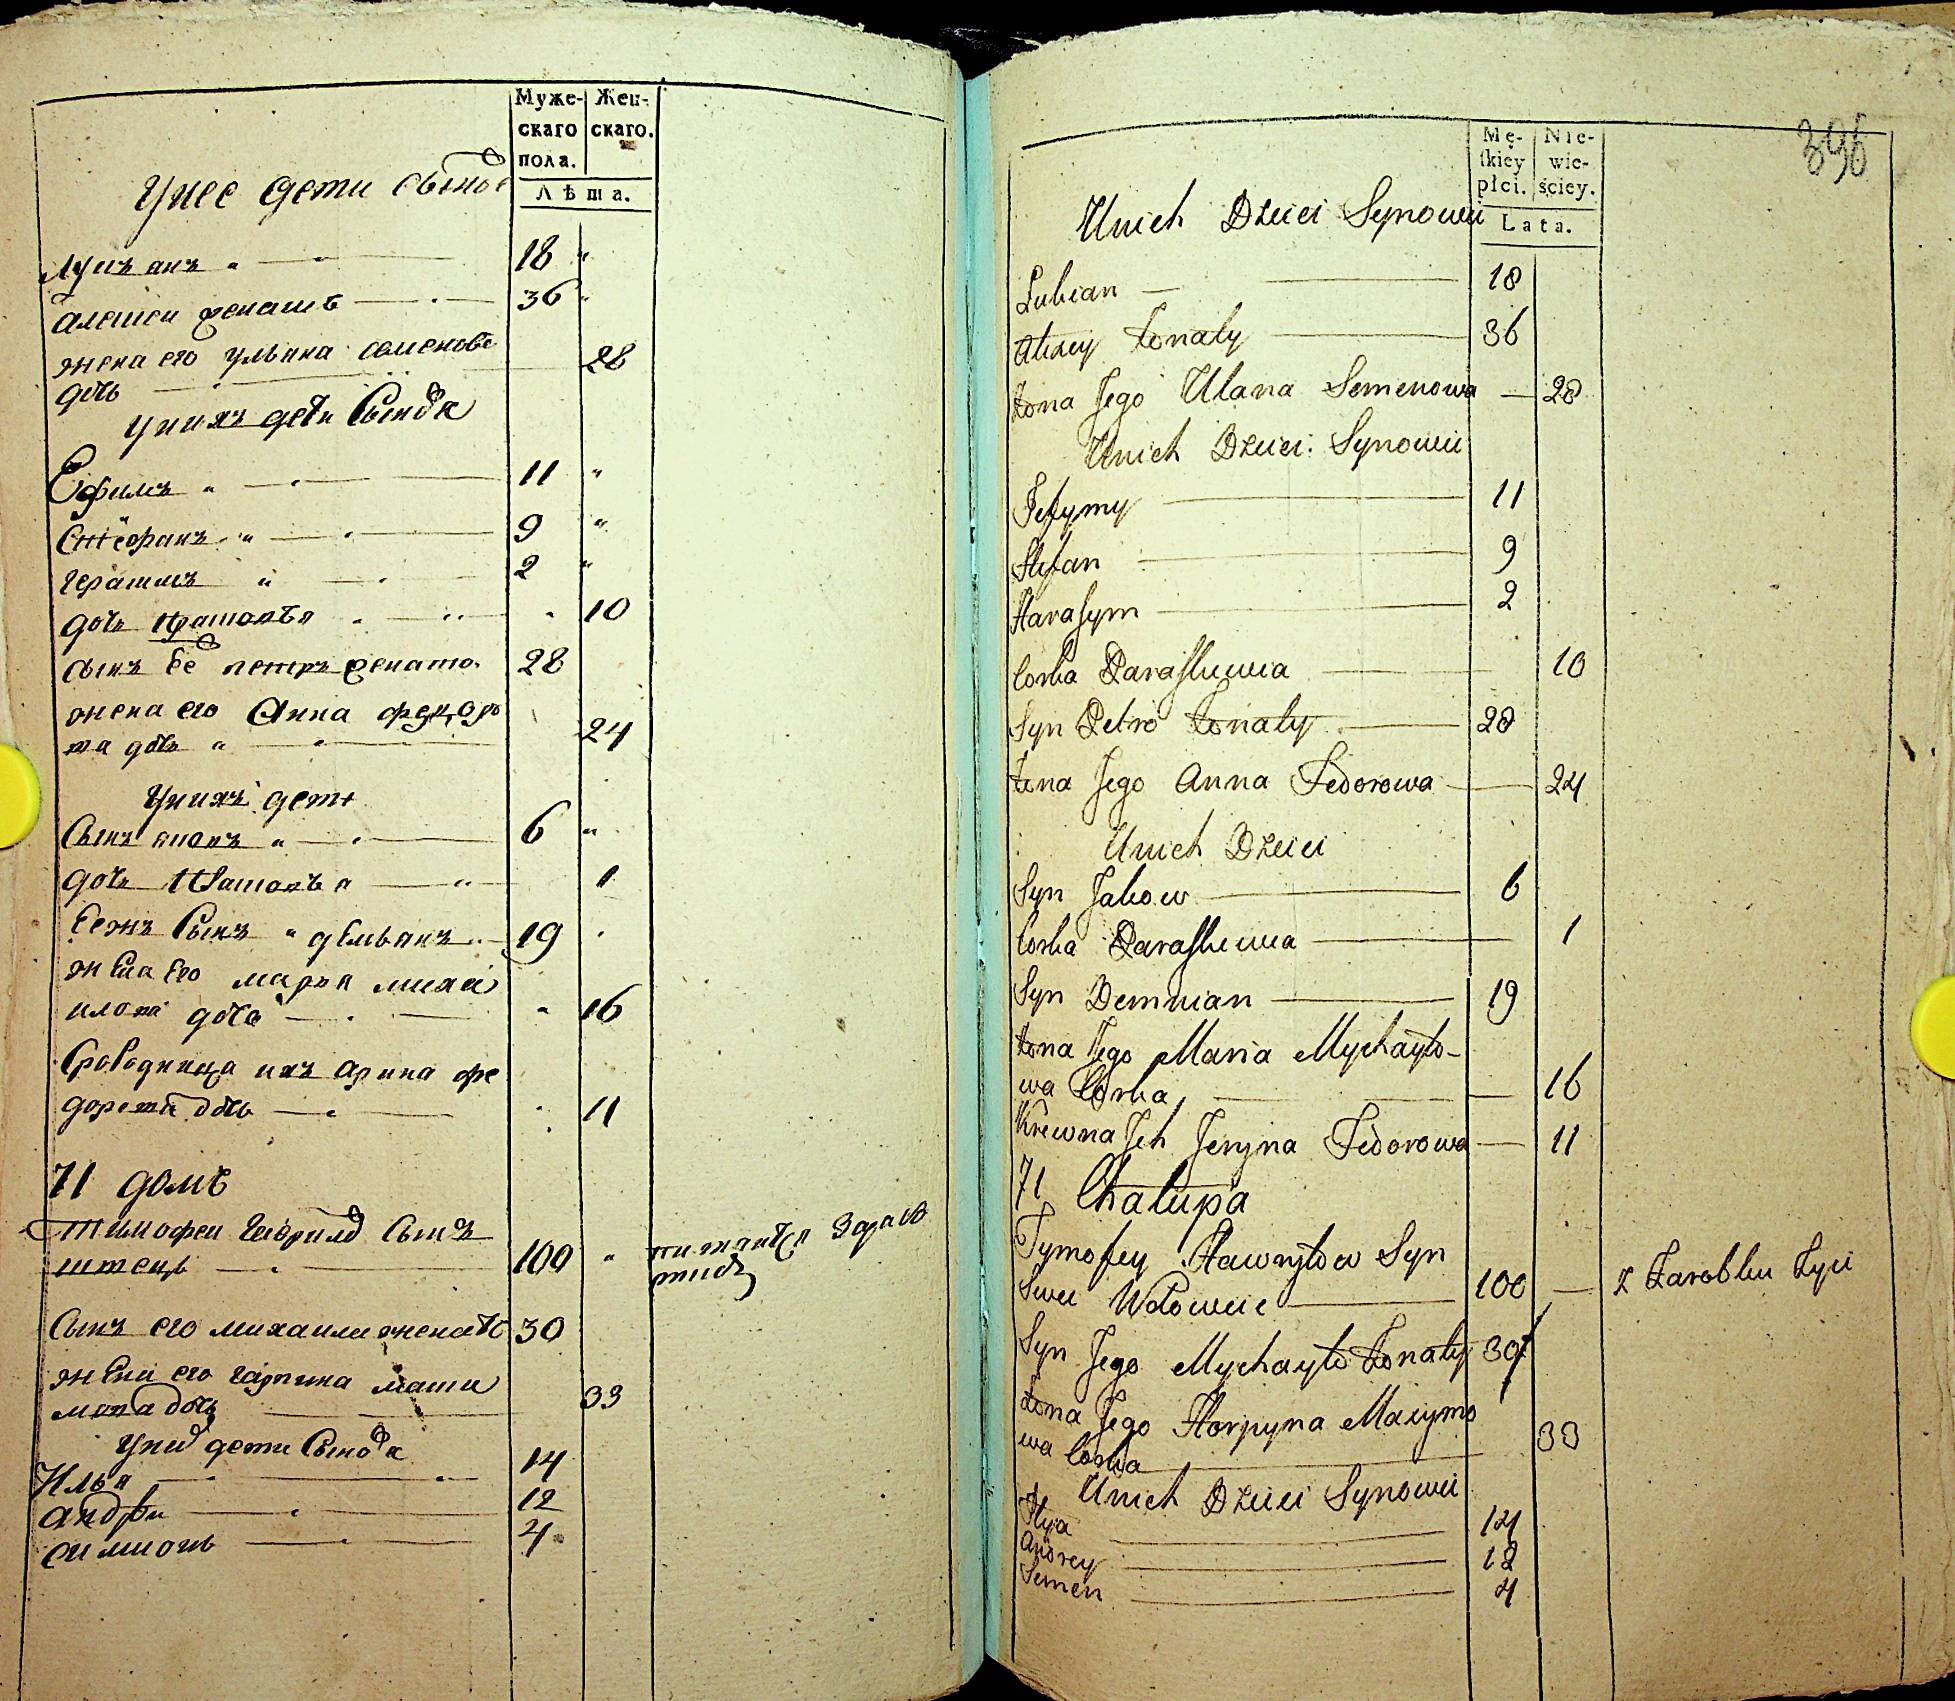 Муже- Жен-
скаго скаго.
пола.
Лѣта.
Унее дети
18 "
36 "
жена его ульяна
28
дочь
Унихъ дети Сынова
Ефимъ " 11 "
Стефанъ " 9 "
герасимъ " 2 "
дочь 10
сынъ ее петръ 28
жена его Анна федоро
ва дочь " 24
Унихъ дети
Сынъ яковъ " 6 "
дочь 1
Сынъ " демьянъ 19
жена его марья михаи
лова дочь " 16
ихъ арина фе
дорова дочь 11
71 домъ
тимофеи гаврилов Сынъ
100 "
Сынъ его михаила женатъ 30
жена его гарпина макси
мова дочь 33
Уних дети Сынова
Илья 14
андреи 12
симионъ 4
396
Mę- Nie-
ſkiey wie-
płci. ściey.
Lata.
Unich Dzieci Synowii
Lukian 18
Alexey żonaty 36
żona Jego Ulana Semenowa 28
Unich Dzieci Synowii
Jefymy 11
Stefan 9
Haraſym 2
Corka Paraſkiewia 10
Syn Petro żonaty 28
żona Jego Anna Fedorowa 24
Unich Dzieci
Syn Jakow 6
Corka Paraſkiewia 1
Syn Demnian 19
żona Jego Maria Mychayło-
wa Corka 16
Krewna Jch Jeryna Fedorowa 11
71 Chałupa
Tymofey Hawryłow Syn
100 z Zarobku Zyie
Syn Jego Mychayło żonaty 30
żona Jego Horpyna Maxymo
wa Corka 33
Unich Dzieci Synowii
Ilya 14
Andrey 12
Semen 4